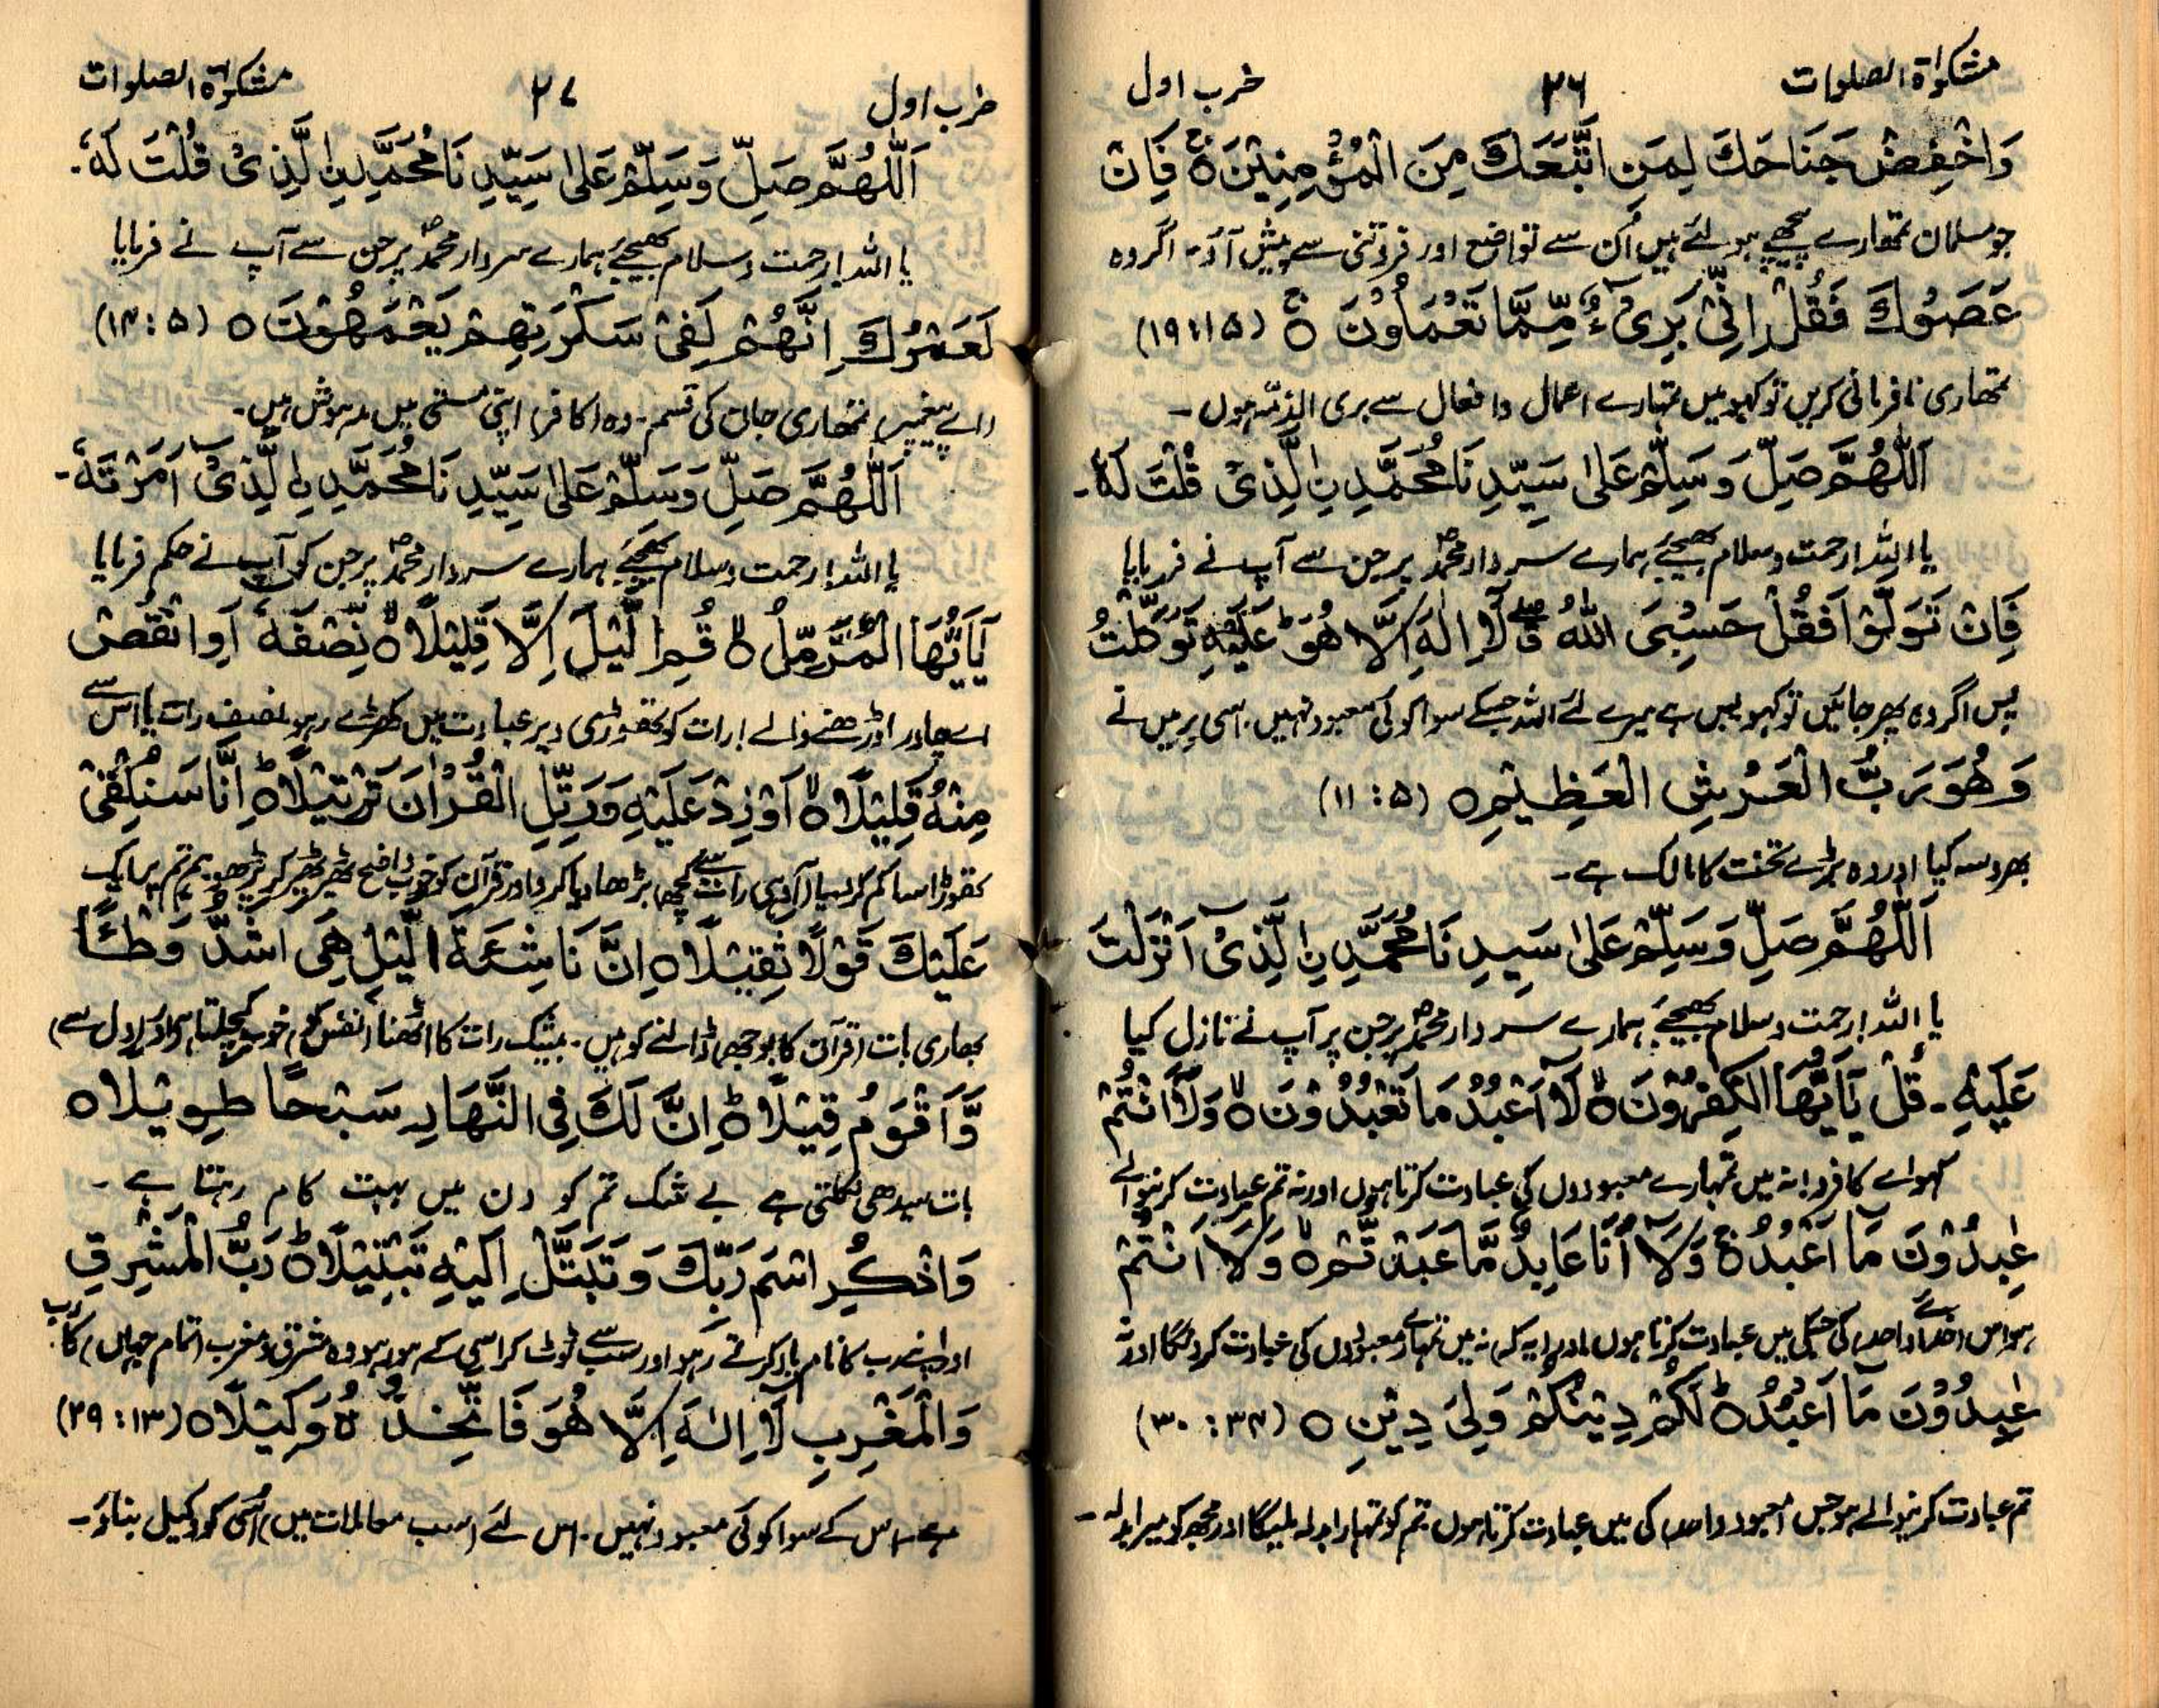 مشکوٰۃ الصلوات ۲۶ حزب اول
وَاخْفِضْ جَنَاحَكَ لِمَنِ اتَّبَعَكَ مِنَ الْمُؤْمِنِيْنَ ۚ فَاِنْ
جو مسلمان تمھارے پیچھے ہو لئے ہیں اُن سے تواضع اور فروتنی سے پیش آؤ۔ اگر وہ
عَصَوْكَ فَقُلْ اِنِّیْ بَرِیْٓءٌ مِّمَّا تَعْمَلُوْنَ ۚ (۱۹:۱۵)
تمھاری نافرمانی کریں تو کہو میں تمہارے اعمال و افعال سے بری الذمّہ ہوں ۔
اَللّٰهُمَّ صَلِّ وَسَلِّمْ عَلٰى سَيِّدِنَا مُحَمَّدِ نِ الَّذِیْ قُلْتَ لَهٗ ۔
یا اللہ! رحمت و سلام بھیجئے ہمارے سردار محمدؐ پر جن سے آپ نے فرمایا
فَاِنْ تَوَلَّوْا فَقُلْ حَسْبِیَ اللّٰهُ ۖ لَآ اِلٰهَ اِلَّا هُوَ ؕ عَلَيْهِ تَوَكَّلْتُ
پس اگر وہ پھر جائیں تو کہو بس ہے میرے لئے اللہ جسکے سوا کوئی معبود نہیں، اسی پر میں نے
وَهُوَ رَبُّ الْعَرْشِ الْعَظِيْمِ ۝ (۱۱:۵)
بھروسہ کیا اور وہ بڑے تخت کا مالک ہے ۔
اَللّٰهُمَّ صَلِّ وَسَلِّمْ عَلٰى سَيِّدِ نَا مُحَمَّدِ نِ الَّذِیْٓ اَنْزَلْتَ
یا اللہ! رحمت و سلام بھیجئے ہمارے سردار محمدؐ پر جن پر آپ نے نازل کیا
عَلَيْهِ ۔ قُلْ يٰٓاَيُّهَا الْكٰفِرُوْنَ ۙ لَآ اَعْبُدُ مَا تَعْبُدُوْنَ ۙ وَلَآ اَنْتُمْ
کہو اے کافرو! نہ میں تمہارے معبودوں کی عبادت کرتا ہوں اور نہ تم عبادت کرنیوالے
عٰبِدُوْنَ مَآ اَعْبُدُ ۚ وَلَآ اَنَا عَابِدٌ مَّا عَبَدْ تُّمْ ۙ وَلَآ اَنْتُمْ
ہو اس خدائے واحد کی جسکی میں عبادت کرتا ہوں اور (یہ کہ) نہ میں تمہارے معبودوں کی عبادت کرونگا اور نہ
عٰبِدُوْنَ مَآ اَعْبُدُ ؕ لَكُمْ دِيْنُكُمْ وَلِیَ دِيْنِ ۝ (۳۰:۳۴)
تم عبادت کرنیوالے ہو جس (معبود واحد) کی میں عبادت کرتا ہوں، تم کو تمہارا بدلہ ملیگا اور مجھ کو میرا بدلہ ۔
حزب اول ۲۷ مشکوٰۃ الصلوات
اَللّٰهُمَّ صَلِّ وَسَلِّمْ عَلٰى سَيِّدِ نَا مُحَمَّدِ نِ الَّذِیْ قُلْتَ لَهٗ ۔
یا اللہ! رحمت و سلام بھیجئے ہمارے سردار محمدؐ پر جن سے آپ نے فرمایا
لَعَمْرُكَ اِنَّهُمْ لَفِیْ سَكْرَتِهِمْ يَعْمَهُوْنَ ۝ (۱۴:۵)
(اے پیغمبر) تمھاری جان کی قسم۔ وہ (کافر) اپنی مستی میں مدہوش ہیں۔
اَللّٰهُمَّ صَلِّ وَسَلِّمْ عَلٰى سَيِّدِ نَا مُحَمَّدِ نِ الَّذِیْٓ اَمَرْتَهٗ ۔
یا اللہ! رحمت و سلام بھیجئے ہمارے سردار محمدؐ پر جن کو آپ نے حکم فرمایا
يٰٓاَيُّهَا الْمُزَّمِّلُ ۙ قُمِ الَّيْلَ اِلَّا قَلِيْلًا ۙ نِّصْفَهٗٓ اَوِ انْقُصْ
اے چادر اوڑھنے والے! رات کو تھوڑی دیر عبادت میں کھڑے رہو، نصف رات یا اس سے
مِنْهُ قَلِيْلًا ۙ اَوْ زِدْ عَلَيْهِ وَرَتِّلِ الْقُرْاٰنَ تَرْتِيْلًا ؕ اِنَّا سَنُلْقِیْ
تھوڑا سا کم کر لو یا (آدھی رات سے) کچھ بڑھا دیا کرو اور قرآن کو خوب واضح ٹھیر ٹھیر کر پڑھو، ہم تم پر ایک
عَلَيْكَ قَوْلًا ثَقِيْلًا ۝ اِنَّ نَاشِئَةَ الَّيْلِ هِیَ اَشَدُّ وَطْئًا
بھاری بات (قرآن کا بوجھ) ڈالنے کو ہیں۔ بیشک رات کا اٹھنا (نفس کو) خوب کچلتا ہے اور (دل سے)
وَّاَقْوَمُ قِيْلًا ؕ اِنَّ لَكَ فِی النَّهَارِ سَبْحًا طَوِيْلًا ۝
بات سیدھی نکلتی ہے بے شک تم کو دن میں بہت کام رہتا ہے ۔
وَاذْكُرِ اسْمَ رَبِّكَ وَتَبَتَّلْ اِلَيْهِ تَبْتِيْلًا ؕ رَبُّ الْمَشْرِقِ
اور اپنے رب کا نام یاد کرتے رہو اور سب سے ٹوٹ کر اسی کے ہو رہو وہ مشرق و مغرب (تمام جہاں) کا رب
وَالْمَغْرِبِ لَآ اِلٰهَ اِلَّا هُوَ فَاتَّخِذْ هُ وَكِيْلًا ۝ (۲۹:۱۳)
ہے۔ اس کے سوا کوئی معبود نہیں۔ اس لئے (سب معاملات میں) اُسی کو وکیل بناؤ۔